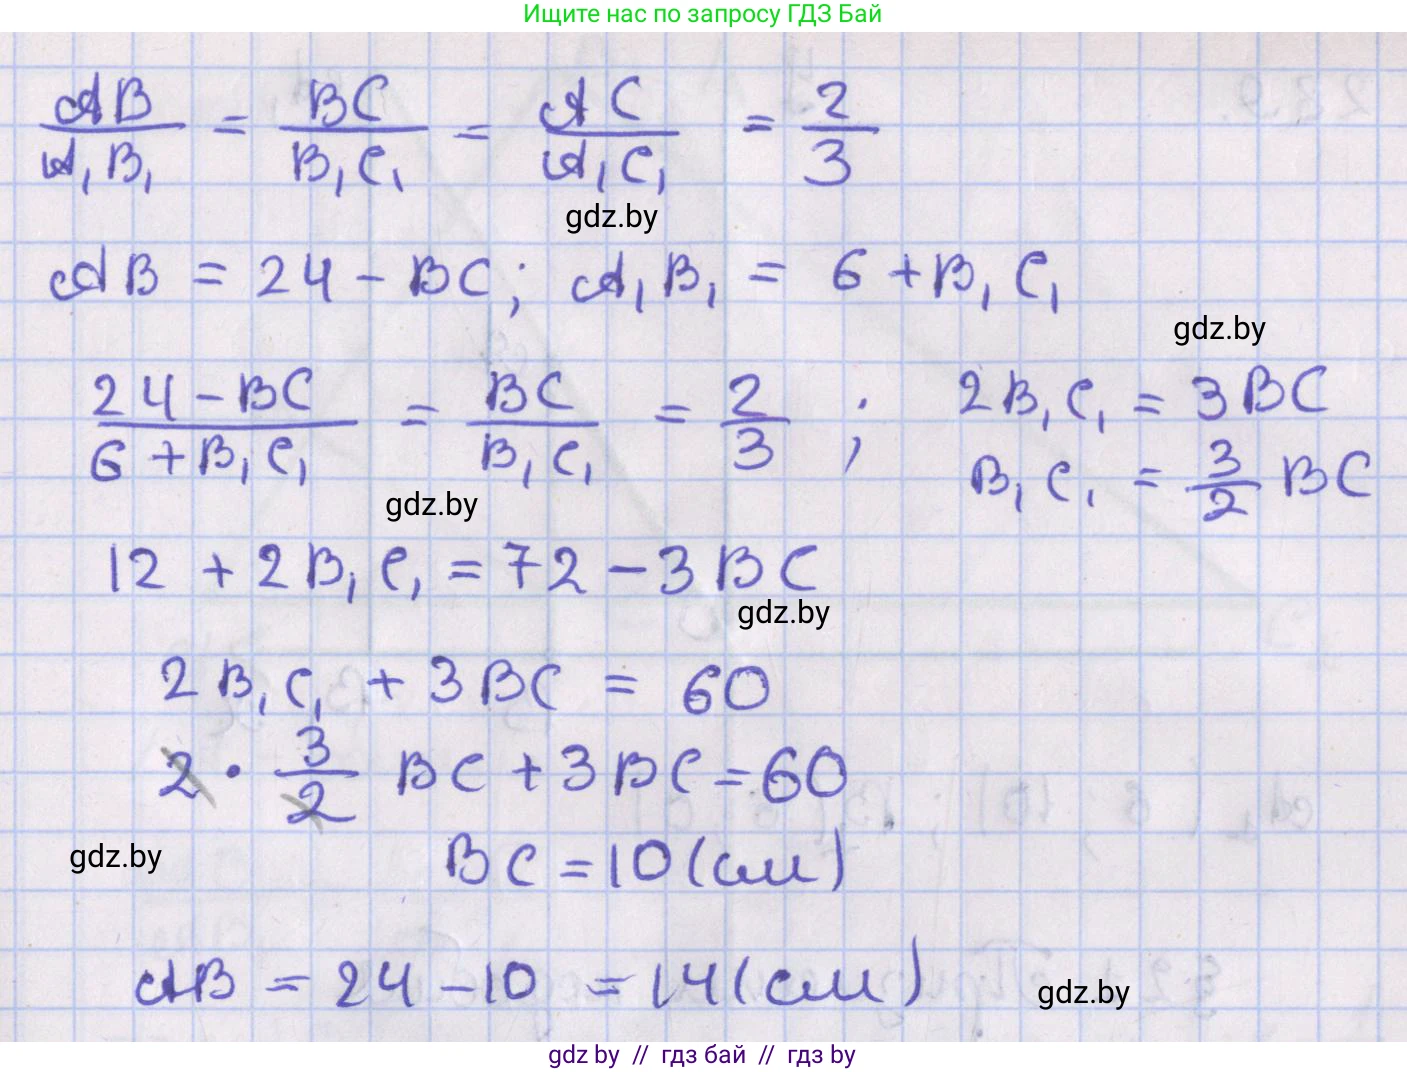 Ищите нас по запросу ГДЗ Бай
AB/A₁B₁ = BC/B₁C₁ = AC/A₁C₁ = 2/3
gdz.by
AB = 24 - BC; A₁B₁ = 6 + B₁C₁
gdz.by
(24 - BC)/(6 + B₁C₁) = BC/B₁C₁ = 2/3 ; 2B₁C₁ = 3BC
B₁C₁ = 3/2 BC
gdz.by
12 + 2B₁C₁ = 72 - 3BC
gdz.by
2B₁C₁ + 3BC = 60
2 · 3/2 BC + 3BC = 60
gdz.by
BC = 10 (см)
AB = 24 - 10 = 14 (см)
gdz.by
gdz by // гдз бай // гдз by